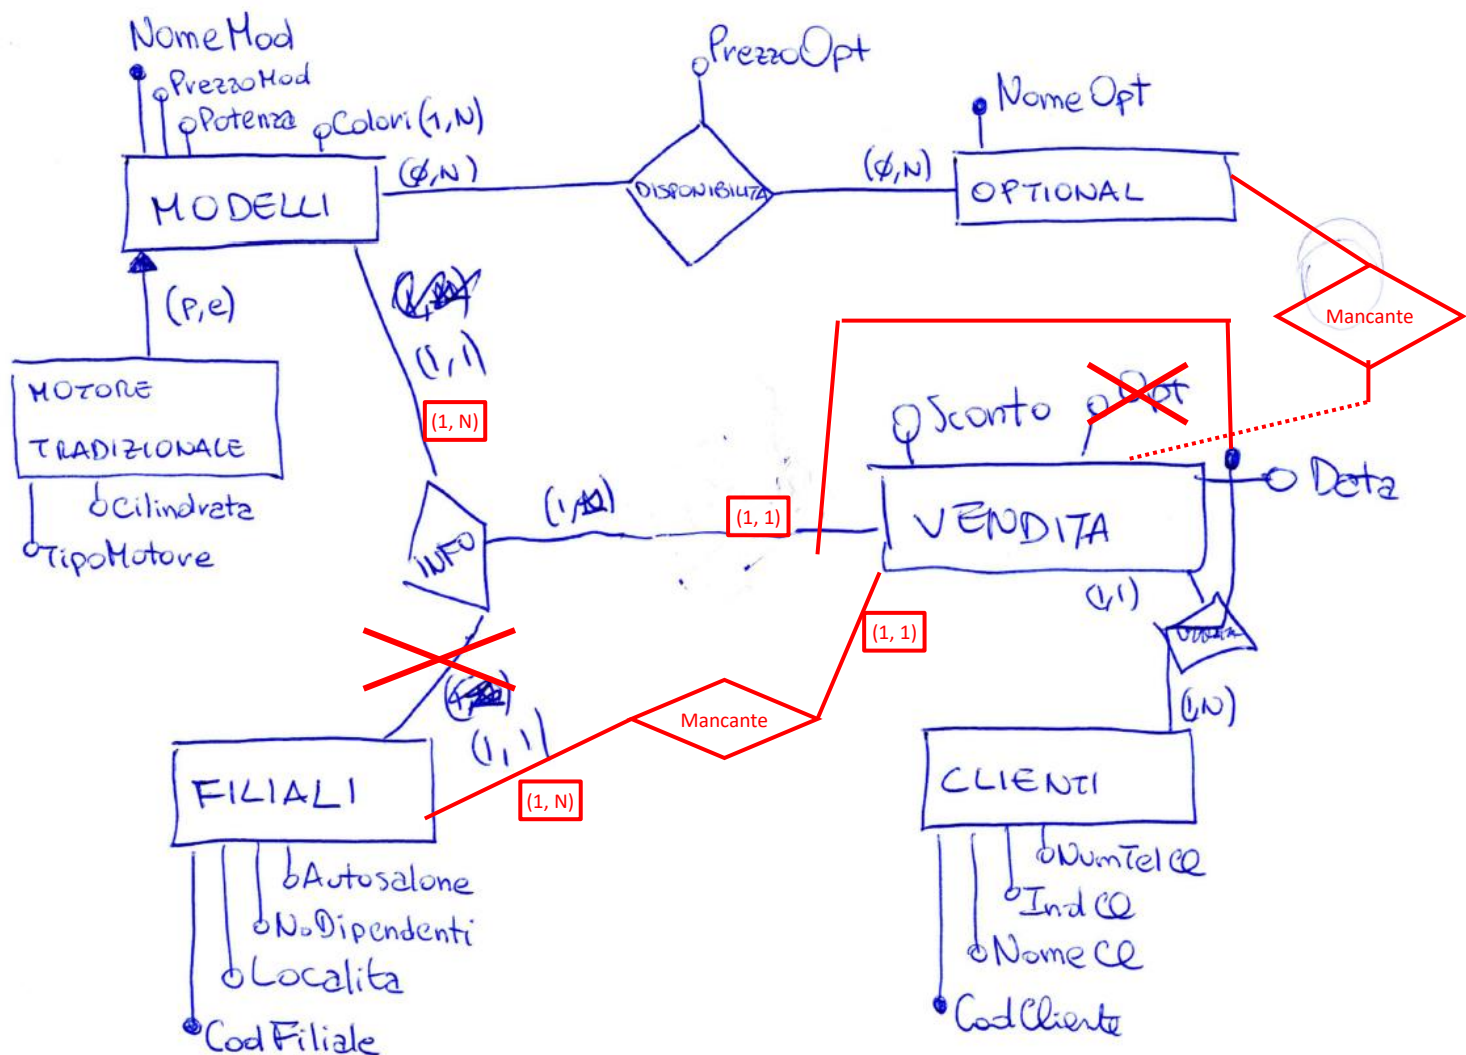 NomeMod
PrezzoMod
Potenza
Colori (1,N)
MODELLI
(Ø,N)
PrezzoOpt
DISPONIBILITA
(Ø,N)
NomeOpt
OPTIONAL
Mancante
(p,e)
MOTORE
TRADIZIONALE
Cilindrata
TipoMotore
(1,1)
(1, N)
INFO
(1, 1)
Sconto
Opt
Data
VENDITA
(1,1)
(1, 1)
Mancante
(1,1)
(1, N)
(1,N)
FILIALI
Autosalone
NoDipendenti
Localita
CodFiliale
CLIENTI
NumTelCl
IndCl
NomeCl
CodCliente